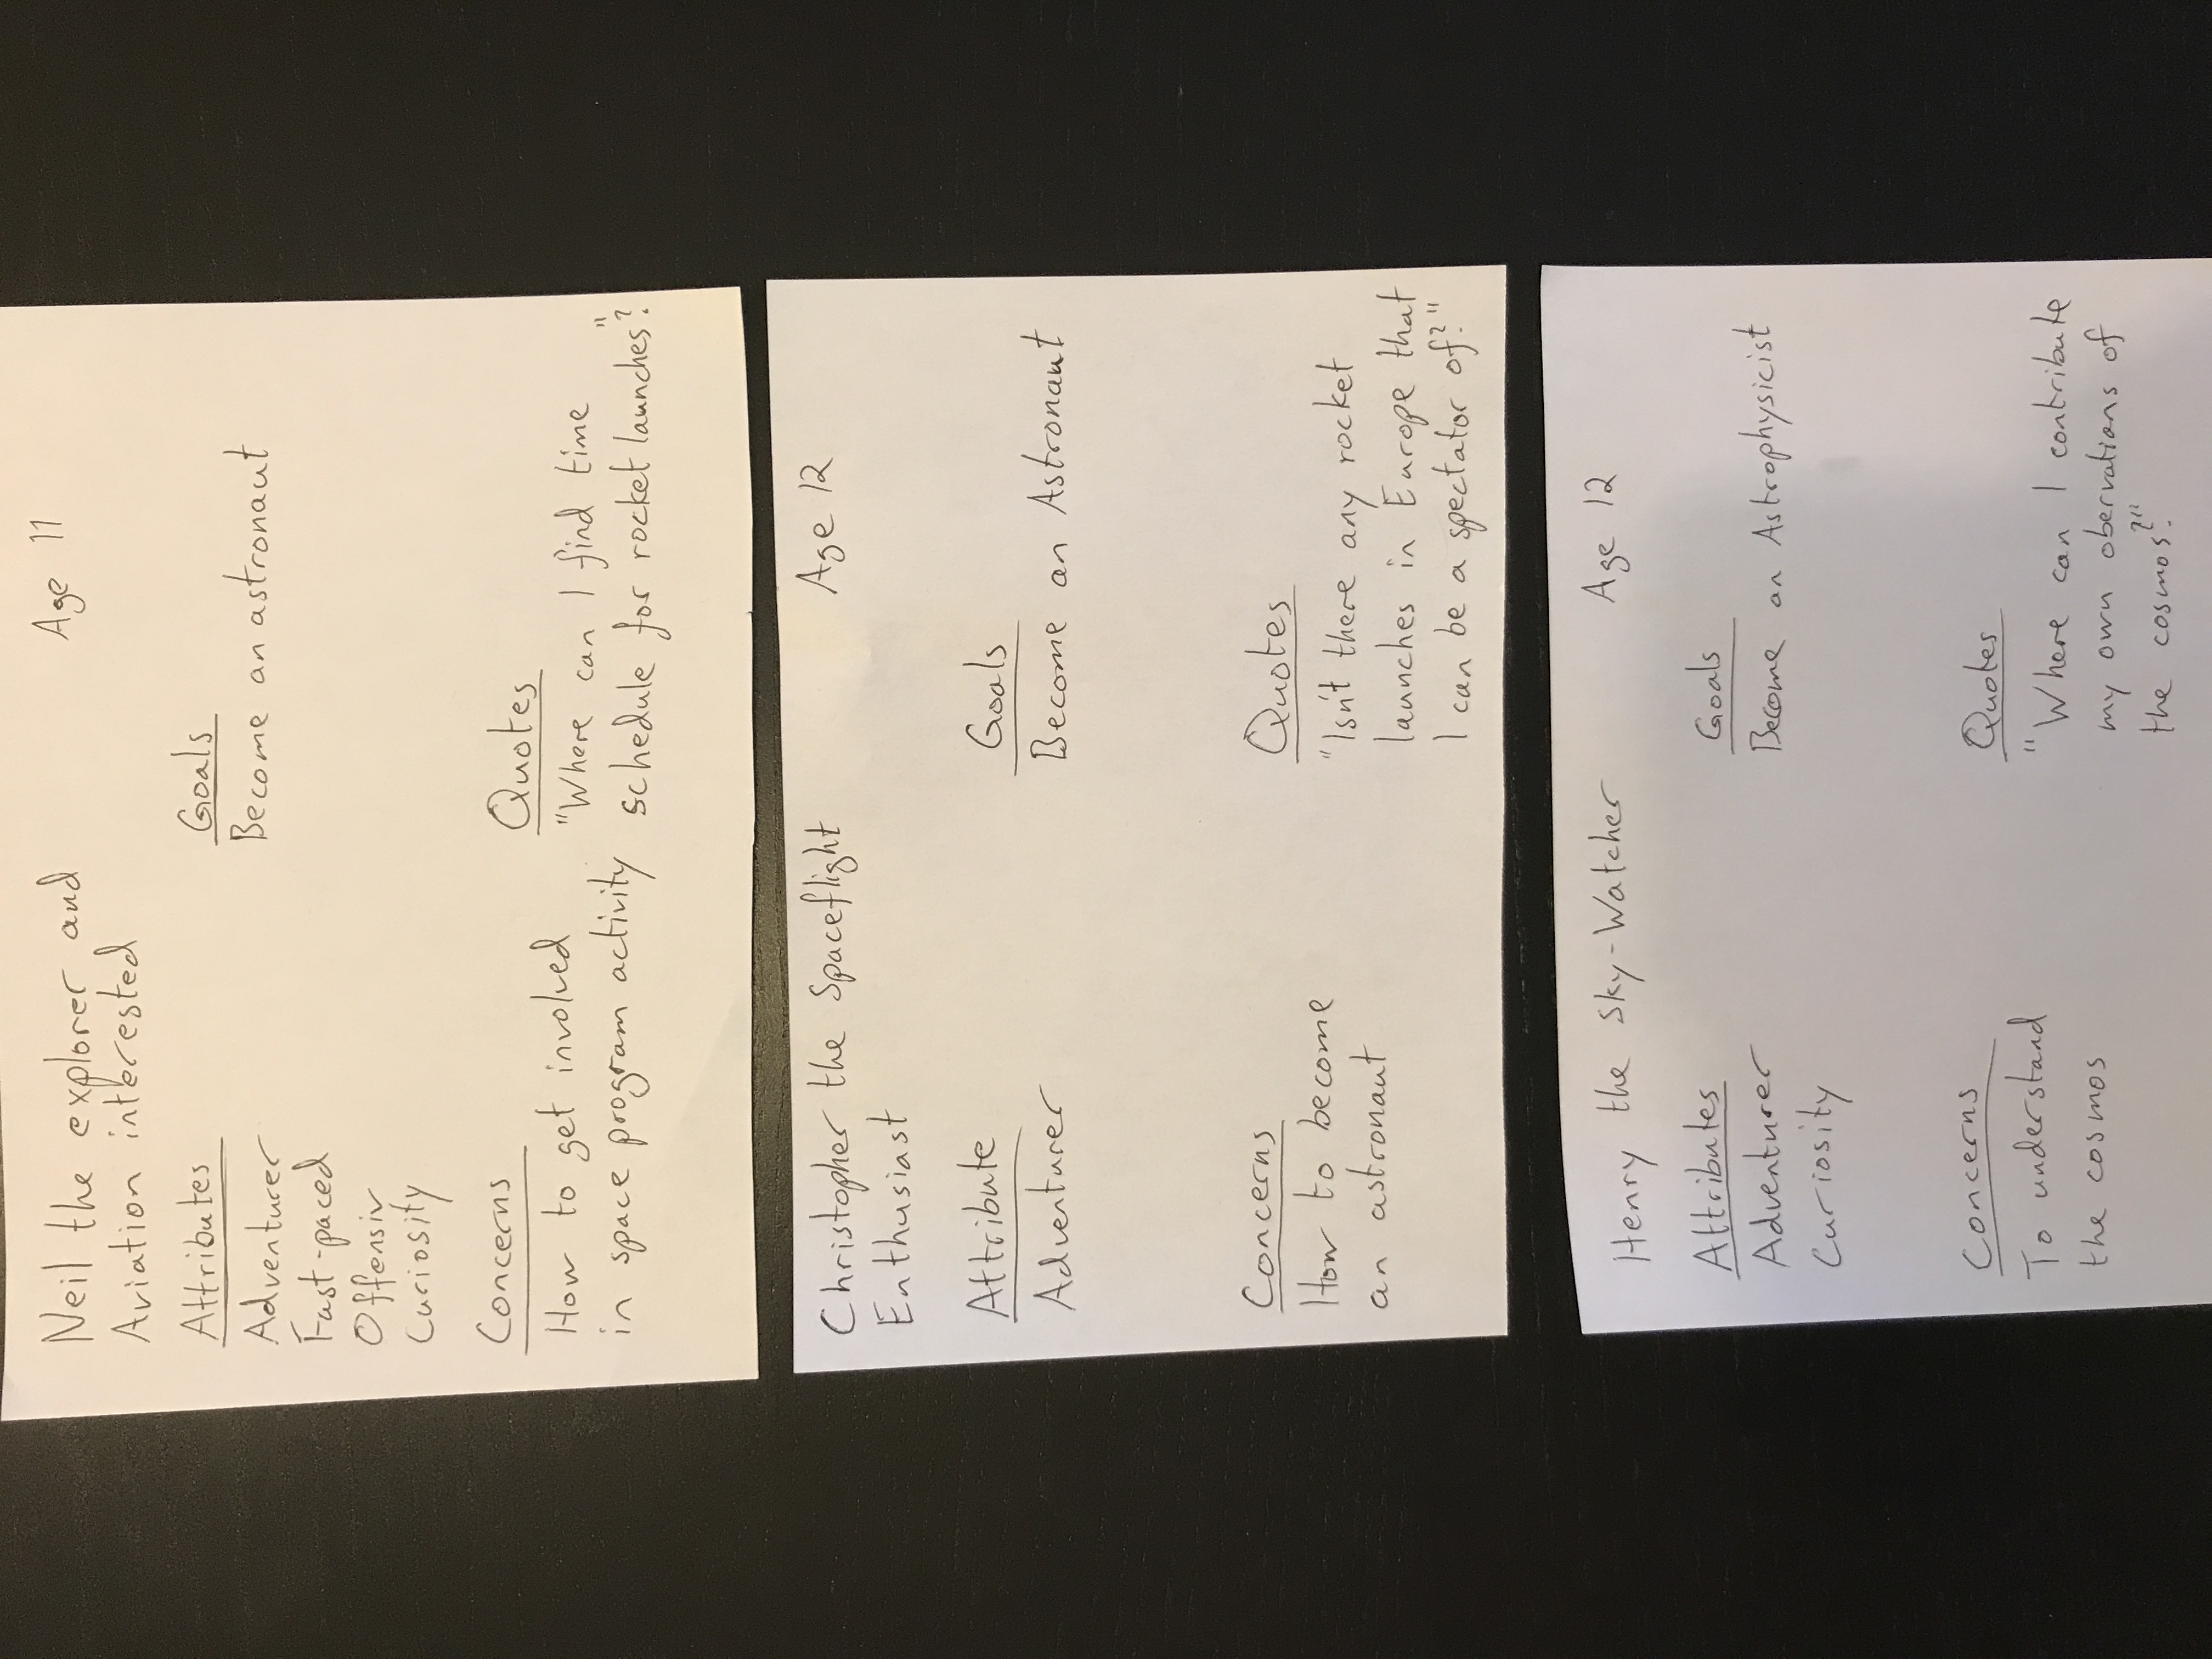 Neil the explorer and
Aviation interested
Age 11
Attributes
Adventurer
Fast-paced
Offensiv
Curiosity
Goals
Become an astronaut
Concerns
How to get involved
in space program activity
Quotes
"Where can I find time
schedule for rocket launches"?
Christopher the Spaceflight
Enthusiast
Age 12
Attribute
Adventurer
Goals
Become an Astronaut
Concerns
How to become
an astronaut
Quotes
"Isn't there any rocket
launches in Europe that
I can be a spectator of?"
Henry the Sky-Watcher
Age 12
Attributes
Adventurer
Curiosity
Goals
Become an Astrophysicist
Concerns
To understand
the cosmos
Quotes
"Where can I contribute
my own obervations of
the cosmos?"